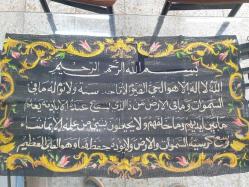 بسم الله الرحمن الرحيم
الله لا اله الا هو الحي القيوم لا تاخذه سنة ولا نوم له ما في
السموات وما في الارض من ذا الذي يشفع عنده الا باذنه يعلم
ما بين ايديهم وما خلفهم ولا يحيطون بشئ من علمه الا بما شاء
وسع كرسيه السموات والارض ولا يؤده حفظهما وهو العلي العظيم